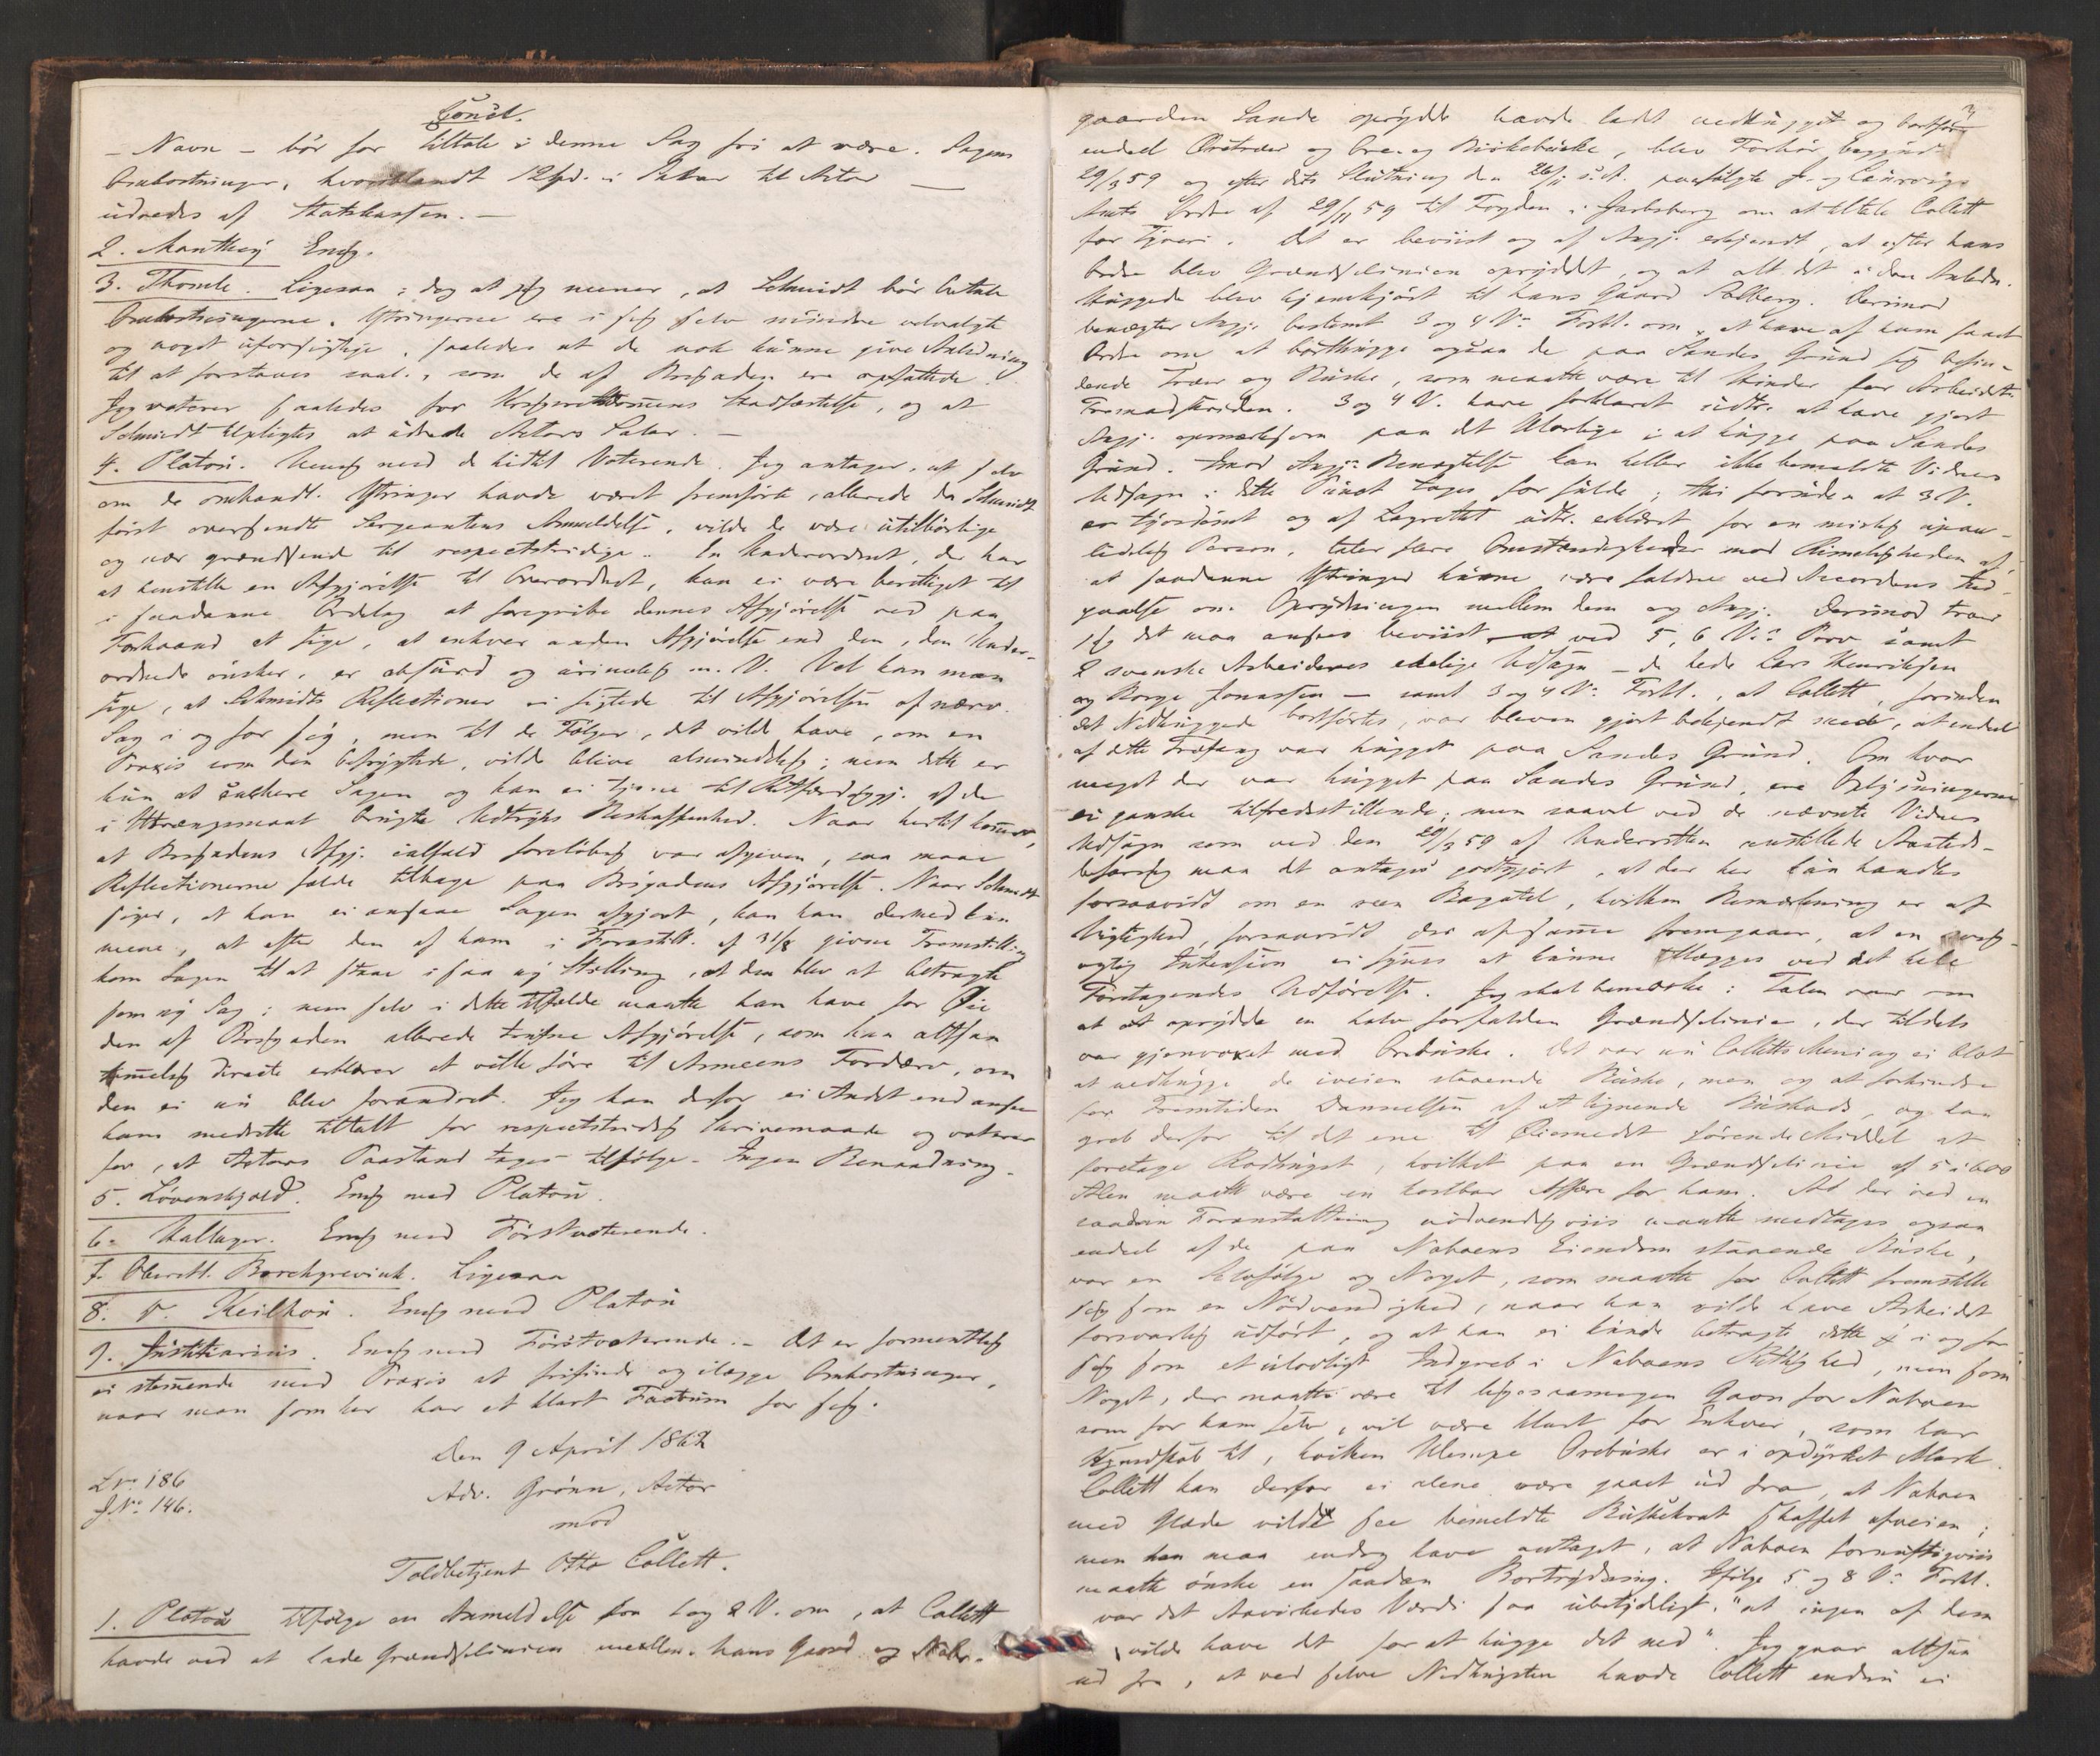 Concl.
– Navn – bör for Tiltale i denne Sag fri at være. Sagens
Omkostninger, hvoriblandt 12 Spd. i Salær til Actor —
udredes af Statskassen. –
2. Manthey Enig.
3. Thomle. Ligesaa; dog at jeg mener, at Schmidt bör betale
Omkostningerne. Ytringerne ere i sig selv mindre velvalgte
og noget uforsigtige, saaledes at de nok kunne give Anledning
til at forstaaes saal., som de af Brigaden ere opfattede.
Jeg voterer saaledes for Krigsretsdommens Stadfæstelse, og at
Schmidt tilpligtes at udrede Actors Salær. –
4. Platou. Uenig med de hidtil Voterende. Jeg antager, at selv
om de omhandl. Ytringer havde været fremförte, allerede da Schmidt
först oversendte Sergeantens Anmeldelse, vilde de være utilbörlige
og nær grændsende til respectstridige. En Underordnet, der har
at henstille en Afgjörelse til Overordnet, kan ei være berettiget til
i saadanne Ordelag at foregribe dennes Afgjörelse ved paa
Forhaand at sige, at enhver anden Afgjörelse end den, den Under-
ordnede önsker, er absurd og urimelig m. V. Vel kan man
sige, at Schmidts Reflectioner ei sigtede til Afgjörelsen af nærv.
Sag i og for sig, men til de Fölger, det vilde have, om en
Praxis som den befrygtede, vilde blive almindelig; men dette er
kun at Sagen og kan ei tjene til Retfærdiggj. af de
i Utrængsmaal brugte Udtryks Beskaffenhed. Naar hertil kommer,
at Brigadens Afgj. ialfald forelöbig var afgiven, saa maae
Reflectionerne falde tilbage paa Brigadens Afgjörelse. Naar Schmidt
siger, at han ei ansaae Sagen afgjort, kan han dermed kun
mene, at efter den af ham i Forestill. af 31/8 givne Fremstilling
kom Sagen til at staae i saa ny Stilling, at den blev at betragte
som ny Sag; men selv i dette Tilfælde maatte han have for Öie
den af Brigaden allerede trufne Afgjörelse, som han altsaa
temmelig directe erklærer at ville före til Armeens Fordærv, om
den ei nu blev forandret. Jeg kan derfor ei Andet end ansee
ham medrette tiltalt for respectstridig Skrivemaade og voterer
for, at Actors Paastand tages tilfölge. Ingen Benaadning.
5. Lövenskjold. Enig med Platou.
6. Hallager. Enig med Förstvoterende.
7. Oberstl. Borchgrevink. Ligesaa
8. v. Keilhau. Enig med Platou
9. Justitiarius. Enig med Förstvoterende. – Det er formentlig
ei stemmende med Praxis at frifinde og ilægge Omkostninger,
naar man som her har et klart Factum for sig.
Den 9 April 1862
L No 186
J No 146.
Adv. Grönn, Actor
mod
Toldbetjent Otto Collett.
1. Platou Ifölge en Anmeldelse fra 1 og 2 V. om, at Collett
havde ved at lade Grændselinien mellem hans Gaard og Nabo-
gaarden Sande oprydde havde ladt nedhugget og bortfört
endeel Östræer og Ore- og Birkebuske, blev Forhör begyndt
29/3 59 og efter dets Slutning den 26/11 s. A. paafulgte J. og Laurvigs
Amts Ordre af 29/11 59 til Fogden i Jarlsberg om at tiltale Collett
for Tyveri. Det er beviist og af Angj. erkjendt, at efter hans
Ordre blev Grændselinien opryddet, og at alt det i den Anledn.
Huggede blev hjemkjört til hans Gaard Solberg. Derimod
benægter Angj. bestemt 3 og 4 Vs Forkl. om, at have af ham faaet
Ordre om at borthugge ogsaa de paa Sandes Grund sig befin-
dende Træer og Buske, som maatte være til Hinder for Arbeidets
Fremadskriden. 3 og 4 V. have forklaret udtr. at have gjort
Angj. opmærksom paa det Ulovlige i at hugge paa Sandes
Grund. Imod Angjs Benægtelse kan heller ikke bemeldte Vidners
Udsagn i dette Punct tages for fulde; thi foruden at 3 V.
er tyvdömt og af Lagrettet udtr. erklæret for en mislig upaa-
lidelig Person, taler flere Omstændigheder mod Rimeligheden af,
at saadanne Ytringer kunne være faldne ved Accordens Ind-
gaaelse om Oprydningen mellem dem og Angj. Derimod troer
jeg det maa ansees beviist ved 5, 6 Vs Prov samt
2 svenske Arbeideres edelige Udsagn – de hede Lars Henriksen
og Borge Jonassen – samt 3 og 4 Vs Forkl., at Collett, forinden
det Nedhuggede bortförtes, var bleven gjort bekjendt med, at endeel
af dette Træfang var hugget paa Sandes Grund. Om hvor
meget der var hugget paa Sandes Grund, ere Oplysningerne
ei ganske tilfredsstillende; men saavel ved de nævnte Vidners
Udsagn som ved den 29/3 59 af Underretten anstillede Aasteds-
befaring maa det antages godtgjort, at der her kun handles
forsaavidt om en reen Bagatel, hvilken Bemærkning er af
Vigtighed, forsaavidt der af samme fremgaaer, at en svig-
agtig Intension ei synes at kunne tillægges ved det hele
Foretagendes Udförelse. Jeg skal bemærke: Talen var om
at oprydde en halv forfalden Grændselinie, der tildels
var gjenvoxet med Orebuske. Det var nu Colletts Mening ei blot
at nedhugge de iveien staaende Buske, men og at forhindre
for Fremtiden Dannelsen af et lignende Buskads, og han
greb derfor til det ene til Öiemedet förende Middel at
foretage Rodhugst, hvilket paa en Grændselinie af 5 à 600
Alen maatte være en kostbar Affære for ham. At der ved en
saadan Foranstaltning nödvendigviis maatte medtages ogsaa
endeel af de paa Naboens Eiendom staaende Buske,
var en Selvfölge og Noget, som maatte for Collett fremstille
sig som en Nödvendighed, naar han vilde have Arbeidet
forsvarlig udfört, og at han ei kunde betragte dette i og for
sig som et ulovligt Indgreb i Naboens Rettighed, men som
Noget, der maatte være til ligesaamegen Gavn for Naboen
som for ham selv, vil være klart for Enhver, som har
Kjendskab til, hvilken Ulempe Orebuske er i opdyrket Mark.
Collett kan derfor ei alene være gaaet ud fra, at Naboen
med Glæde vilde see bemeldte Buskekrat skaffet afveien;
men han maa endog have antaget, at Naboen fornuftigviis
maatte önske en saadan Bortrydning. Ifölge 5 og 8 Vs Forkl.
var det Aavirkedes Værdi saa ubetydeligt, "at ingen af dem
vilde have det for at hugge det ned". Jeg gaar altsaa
ud fra, at ved selve Nedhugsten havde Collett endnu ei